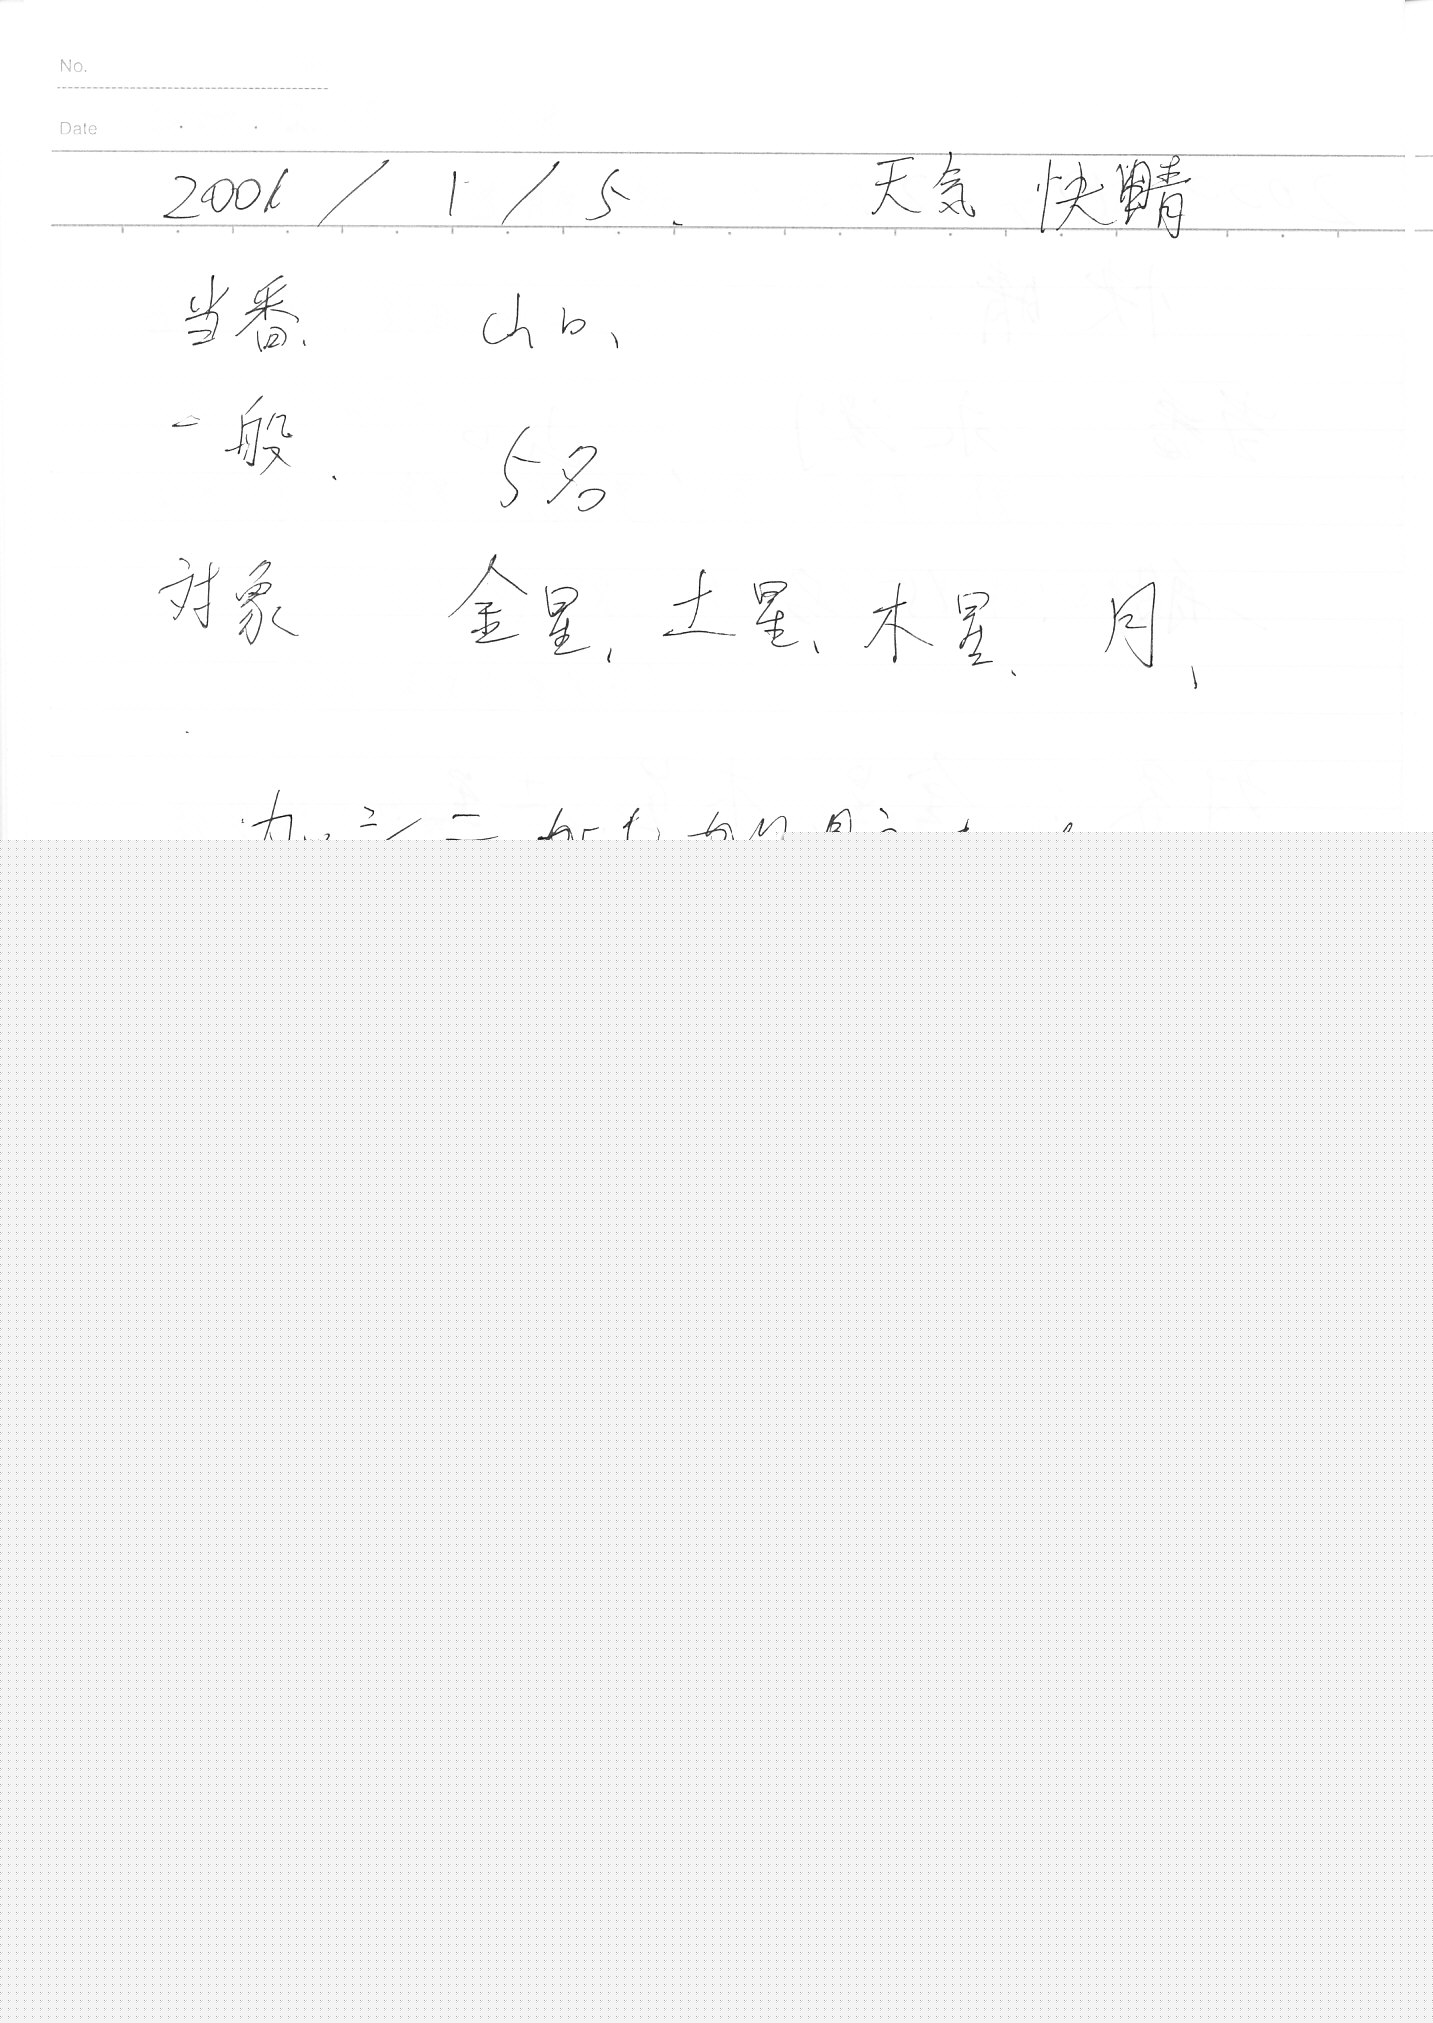 No.
Date
2001 / 1 / 5. 天気 快晴
当番、 山口、
一般. 5名
対象 金星、土星、木星、月、